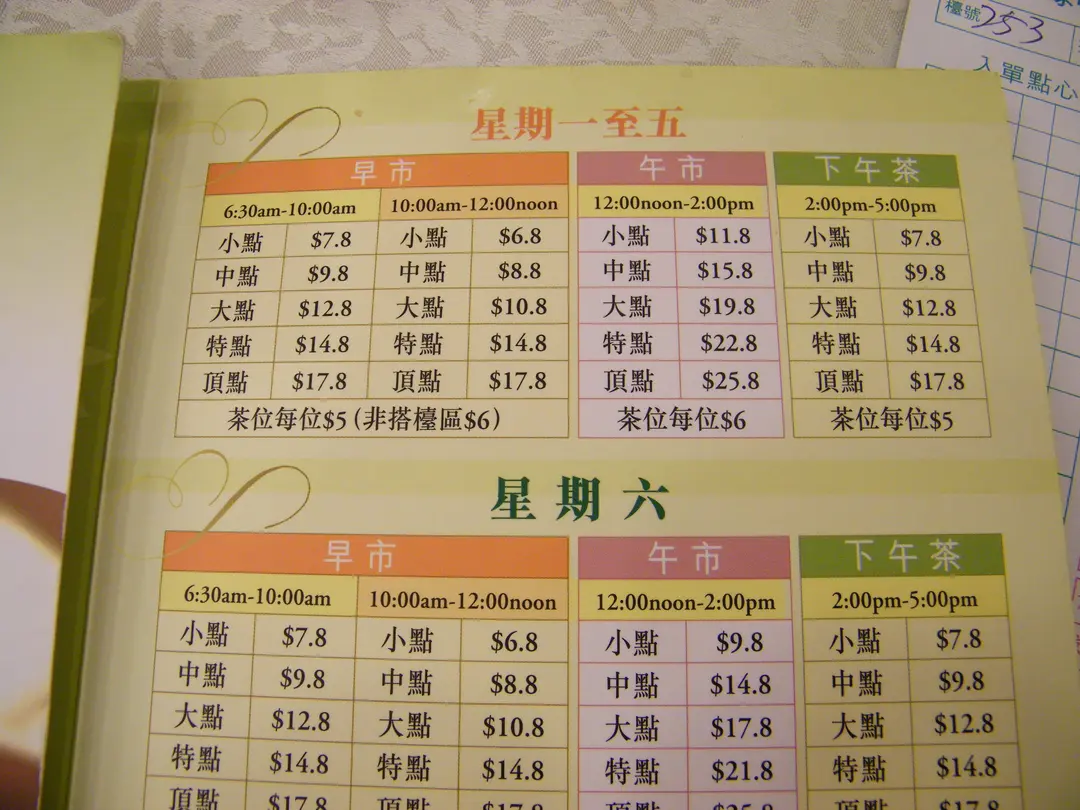 檯號 253
入單點心
星期一至五
早市 午市 下午茶
6:30am-10:00am 10:00am-12:00noon 12:00noon-2:00pm 2:00pm-5:00pm
小點 $7.8 小點 $6.8 小點 $11.8 小點 $7.8
中點 $9.8 中點 $8.8 中點 $15.8 中點 $9.8
大點 $12.8 大點 $10.8 大點 $19.8 大點 $12.8
特點 $14.8 特點 $14.8 特點 $22.8 特點 $14.8
頂點 $17.8 頂點 $17.8 頂點 $25.8 頂點 $17.8
茶位每位$5 (非搭檯區$6) 茶位每位$6 茶位每位$5
星期六
早市 午市 下午茶
6:30am-10:00am 10:00am-12:00noon 12:00noon-2:00pm 2:00pm-5:00pm
小點 $7.8 小點 $6.8 小點 $9.8 小點 $7.8
中點 $9.8 中點 $8.8 中點 $14.8 中點 $9.8
大點 $12.8 大點 $10.8 大點 $17.8 大點 $12.8
特點 $14.8 特點 $14.8 特點 $21.8 特點 $14.8
頂點 $17.8 頂點 $17.8 頂點 $25.8 頂點 $17.8